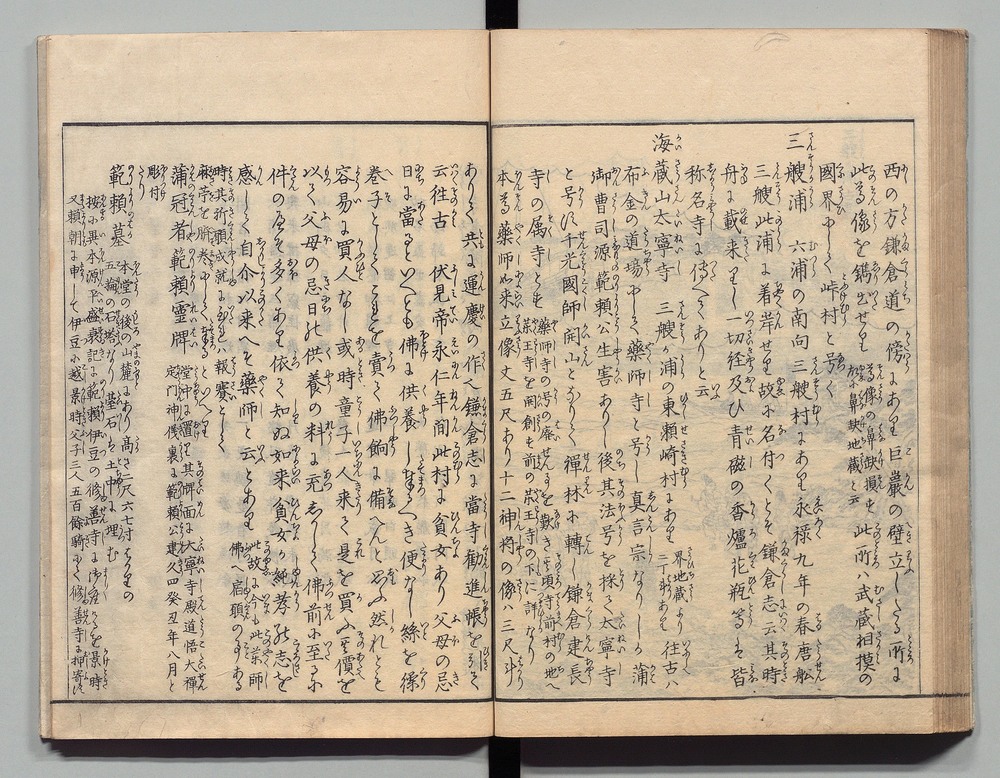 西の方鎌倉道の傍にあり巨巌の壁立したる所に
此尊像を鐫出せり 尊像の鼻缺損も 故に鼻缺地蔵と云 此所ハ武蔵相摸の
國界にして峠村と号く
三艘浦 六浦の南向三艘村にあり永禄九年の春唐舩
三艘此浦に着岸せり故に名付くとそ鎌倉志云其時
舟に載来りし一切経及ひ青磁の香爐花瓶等は皆
称名寺に傳へてありと云
海蔵山太寧寺 三艘か浦の東瀬崎村にあり 界地蔵より 二丁斗あり 往古ハ
布金の道場にして薬師寺と号し真言宗なりしか蒲
御曹司源範頼公生害ありし後其法号を採て太寧寺
と号け千光國師開山となりて禅林に轉し鎌倉建長
寺の属寺とも 薬師寺の号の廃せんを歎き 頃寺前村の地へ 薬王寺を開創も前の薬王寺の下に詳なり
本尊薬師如来立像 丈五尺あり十二神将の像ハ三尺斗
ありて共に運慶の作へ鎌倉志に當寺勧進帳を引て
云往古 伏見帝永仁年間此村に貧女あり父母の忌
日に當るといへとも佛に供養しまいらすへき便なし絲を繰
巻子としてこれを賣て佛餉に備へんとおふ然れとも
容易に買人なし或時童子一人来て是を買ふ其價を
以て父母の忌日の供養の料に充しかして佛前に至るに
件の巻子多くあり依て知ぬ如来貧女か純孝の志を
感して自介以来へそ薬師と云とあり 此故に今も此薬師 佛へ宿願のことある
時其祈願成就にいたれハ報賽として 麻苧を臍巻にして奉るといへり
蒲冠者範頼靈牌 堂中に置其牌面に太寧寺殿道悟大禅 定門神儀裏に範頼公建久四癸丑年八月と
彫付り
範頼墓 本堂の後の山麓にあり高さ二尺六七寸はかりの 五輪の石塔なり基石は土中に埋む
按に異本源平盛衰記に範頼伊豆の修善寺に御座を景時
頼朝に申して伊豆に越景時父子三人五百餘騎にて修善寺に押寄す